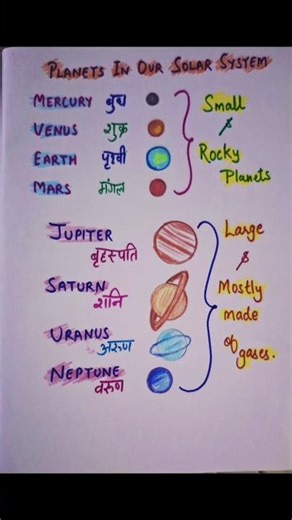 PLANETS IN OUR SOLAR SYSTEM
MERCURY बुध
VENUS शुक्र
EARTH पृथ्वी
MARS मंगल
Small
&
Rocky
Planets
JUPITER
बृहस्पति
SATURN
शनि
URANUS
अरुण
NEPTUNE
वरुण
Large
&
Mostly
made
of gases.